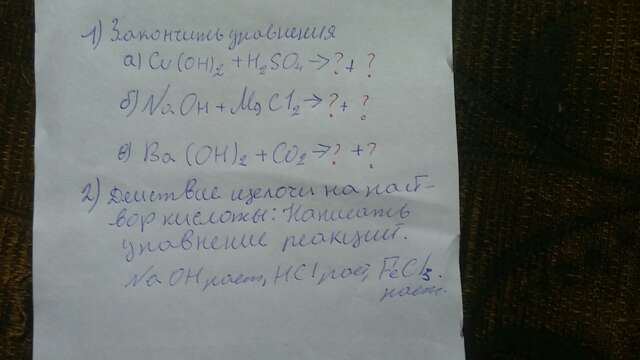 1) Закончить уравнения
а) Cu(OH)₂ + H₂SO₄ → ? + ?
б) NaOH + MgCl₂ → ? + ?
в) Ba(OH)₂ + CO₂ → ? + ?
2) Действие щелочи на раст-
вор кислоты: Написать
уравнение реакций.
NaOH раст, HCl раст, FeCl₃.
раст.